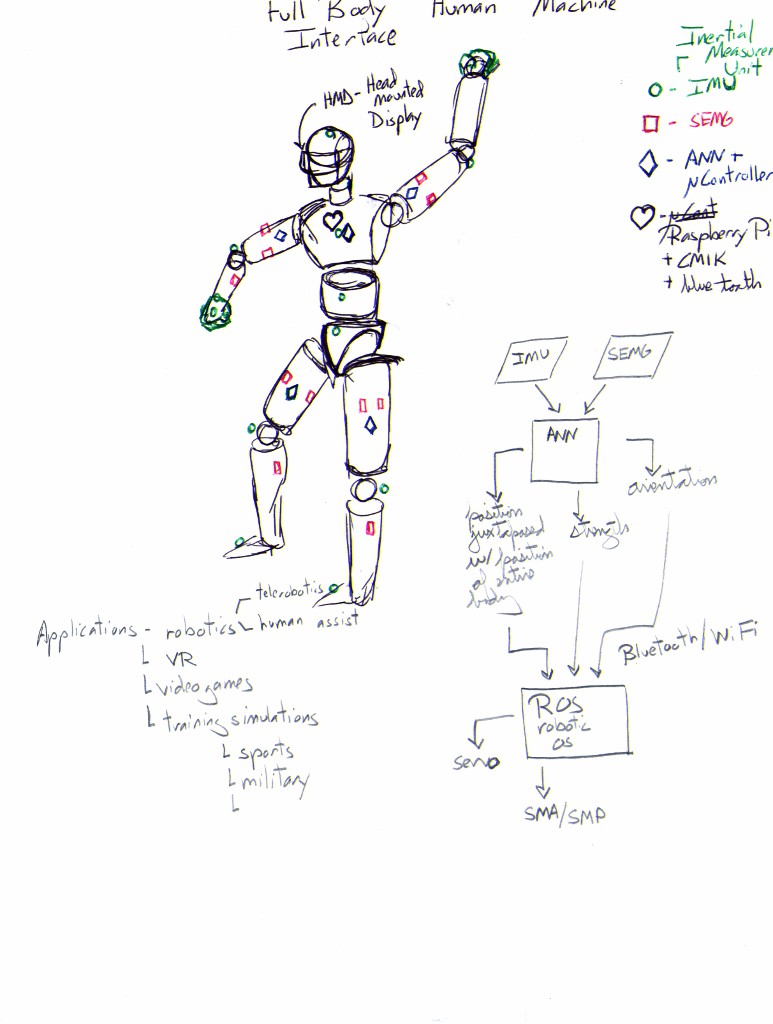 Full Body Human Machine
Interface
HMD - Head
mounted
Display
Inertial
Measurem
Unit
- IMU
- SEMG
- ANN +
μController
- μCont
Raspberry Pi
+ CMIK
+ bluetooth
IMU
SEMG
ANN
position
juxtaposed
w/ position
of entire
body
strength
orientation
Bluetooth/WiFi
ROS
robotic
OS
servo
SMA/SMP
telerobotics
Applications - robotics human assist
VR
videogames
training simulations
sports
military